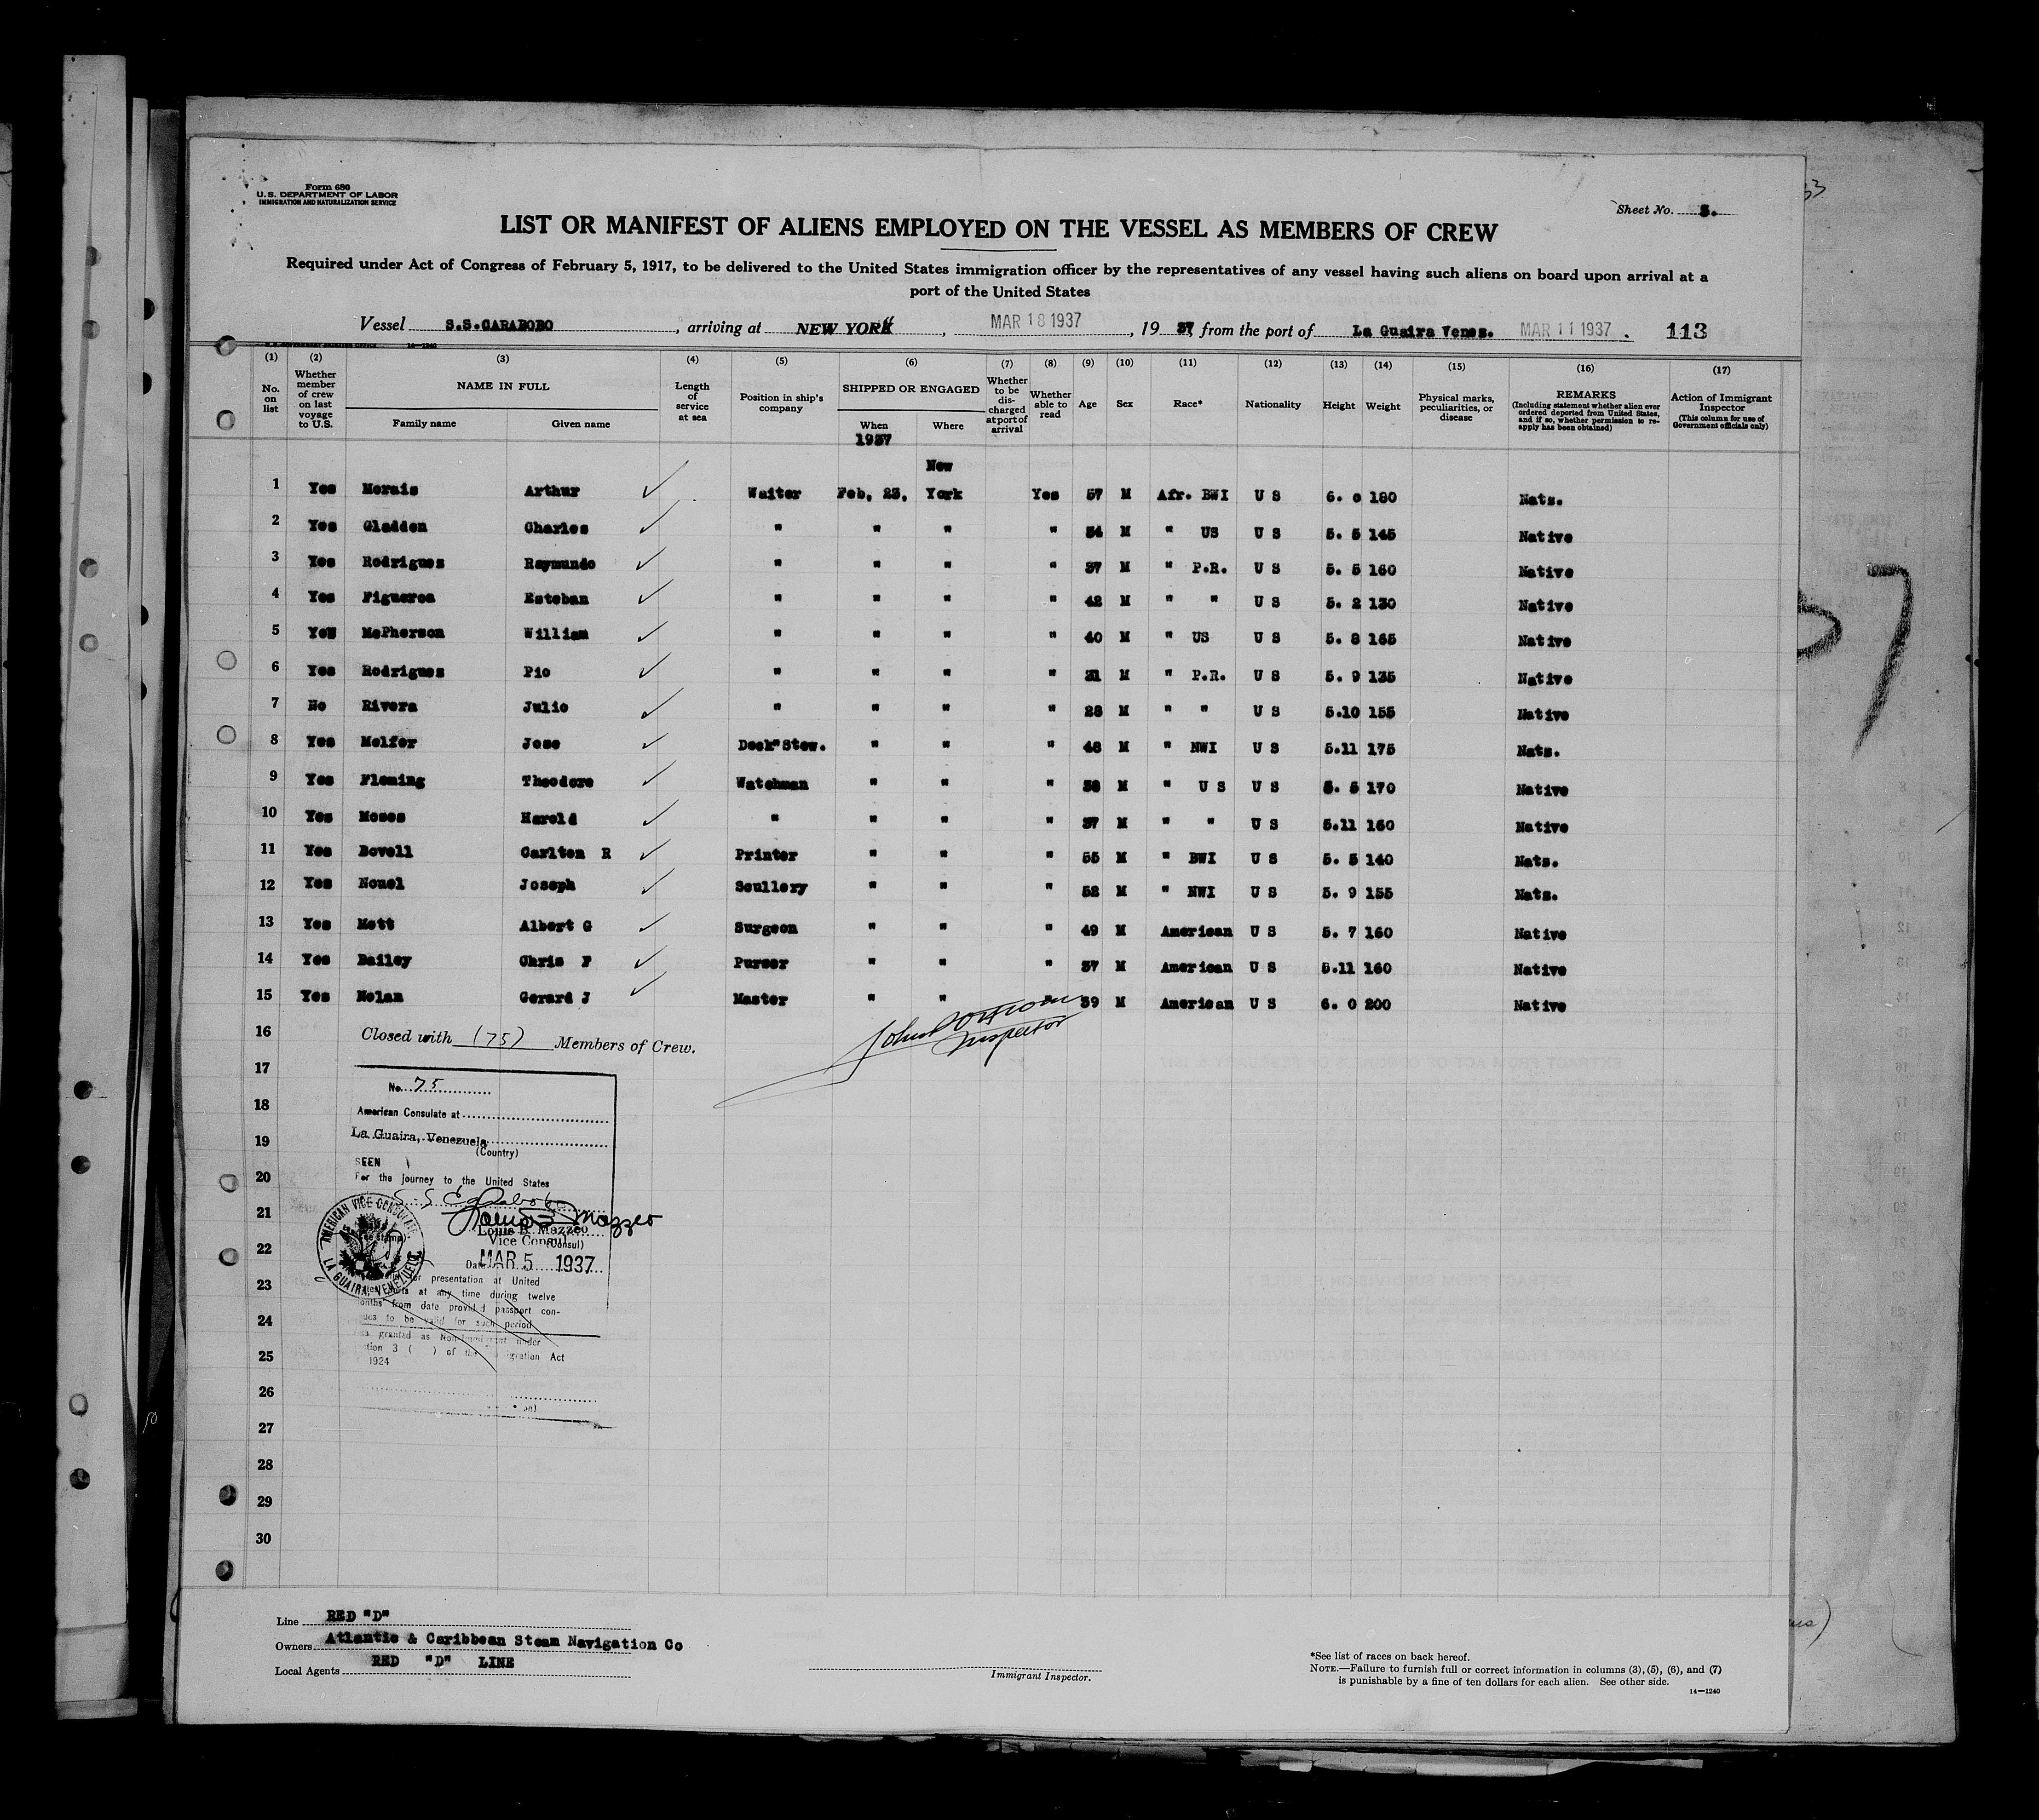 Form 680
U. S. DEPARTMENT OF LABOR
IMMIGRATION AND NATURALIZATION SERVICE
Sheet No. 5.
LIST OR MANIFEST OF ALIENS EMPLOYED ON THE VESSEL AS MEMBERS OF CREW
Required under Act of Congress of February 5, 1917, to be delivered to the United States immigration officer by the representatives of any vessel having such aliens on board upon arrival at a
port of the United States
Vessel S.S.CARABOBO, arriving at NEW YORK, MAR 18 1937, 19 37, from the port of La Guaira Venez. MAR 11 1937. 113
(1) (2) (3) (4) (5) (6) (7) (8) (9) (10) (11) (12) (13) (14) (15) (16) (17)
No. on list
Whether member of crew on last voyage to U.S.
NAME IN FULL
Family name Given name
Length of service at sea
Position in ship's company
SHIPPED OR ENGAGED
When Where
Whether to be discharged at port of arrival
Whether able to read
Age
Sex
Race*
Nationality
Height
Weight
Physical marks, peculiarities, or disease
REMARKS
(Including statement whether alien ever ordered deported from United States, and if so, whether permission to reapply has been obtained)
Action of Immigrant Inspector
(This column for use of Government officials only)
1937
New
1 Yes Morais Arthur ✓ Waiter Feb. 23, York Yes 57 M Afr. BWI U S 6. 0 180 Natz.
2 Yes Gladden Charles ✓ " " " " 34 M " US U S 5. 5 145 Native
3 Yes Rodriguez Raymundo ✓ " " " " 37 M " P.R. U S 5. 5 160 Native
4 Yes Figueroa Esteban ✓ " " " " 42 M " " U S 5. 2 130 Native
5 Yes McPherson William ✓ " " " " 40 M " US U S 5. 8 165 Native
6 Yes Rodriguez Pio ✓ " " " " 21 M " P.R. U S 5. 9 135 Native
7 No Rivera Julio ✓ " " " " 28 M " " U S 5.10 155 Native
8 Yes Melfor Jose ✓ Deck"Stew. " " " 48 M " NWI U S 5.11 175 Natz.
9 Yes Fleming Theodore ✓ Watchman " " " 38 M " U S U S 5. 5 170 Native
10 Yes Moses Harold ✓ " " " " 37 M " " U S 5.11 160 Native
11 Yes Bovell Carlton R ✓ Printer " " " 55 M " BWI U S 5. 5 140 Natz.
12 Yes Nouel Joseph ✓ Scullery " " " 52 M " NWI U S 5. 9 155 Natz.
13 Yes Mott Albert G ✓ Surgeon " " " 49 M American U S 5. 7 160 Native
14 Yes Bailey Chris F ✓ Purser " " " 37 M American U S 5.11 160 Native
15 Yes Nolan Gerard J ✓ Master " " " 39 M American U S 6. 0 200 Native
16 Closed with (75) Members of Crew.
Inspector
17
No. 75
18
American Consulate at
19
La Guaira, Venezuela
(Country)
SEEN
20
For the journey to the United States
S.S. Carabobo
21
Louis B Mazzeo
Louis B. Mazzeo
22
Vice Consul
(Consul)
AMERICAN VICE CONSULATE LA GUAIRA, VENEZUELA
Date MAR 5 1937
23
for presentation at United
at any time during twelve
from date provided passport con-
24
to be valid for such period
granted as Non-Immigrant under
25
3 ( ) of the Act
1924
26
27
28
29
30
Line RED "D"
Owners Atlantic & Caribbean Steam Navigation Co
Local Agents RED "D" LINE
Immigrant Inspector.
*See list of races on back hereof.
NOTE.—Failure to furnish full or correct information in columns (3), (5), (6), and (7)
is punishable by a fine of ten dollars for each alien. See other side.
14—1240